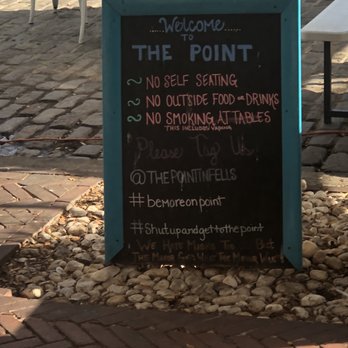 Welcome
TO
THE POINT
NO SELF SEATING
NO OUTSIDE FOOD or DRINKS
NO SMOKING AT TABLES
THIS INCLUDES VAPING
Please Tag Us
@THEPOINTINFELLS
#bemoreonpoint
#Shutupandgettothepoint
WE HATE MASKS TO... BUT
THE MAYOR GETS WHAT THE MAYOR WANTS